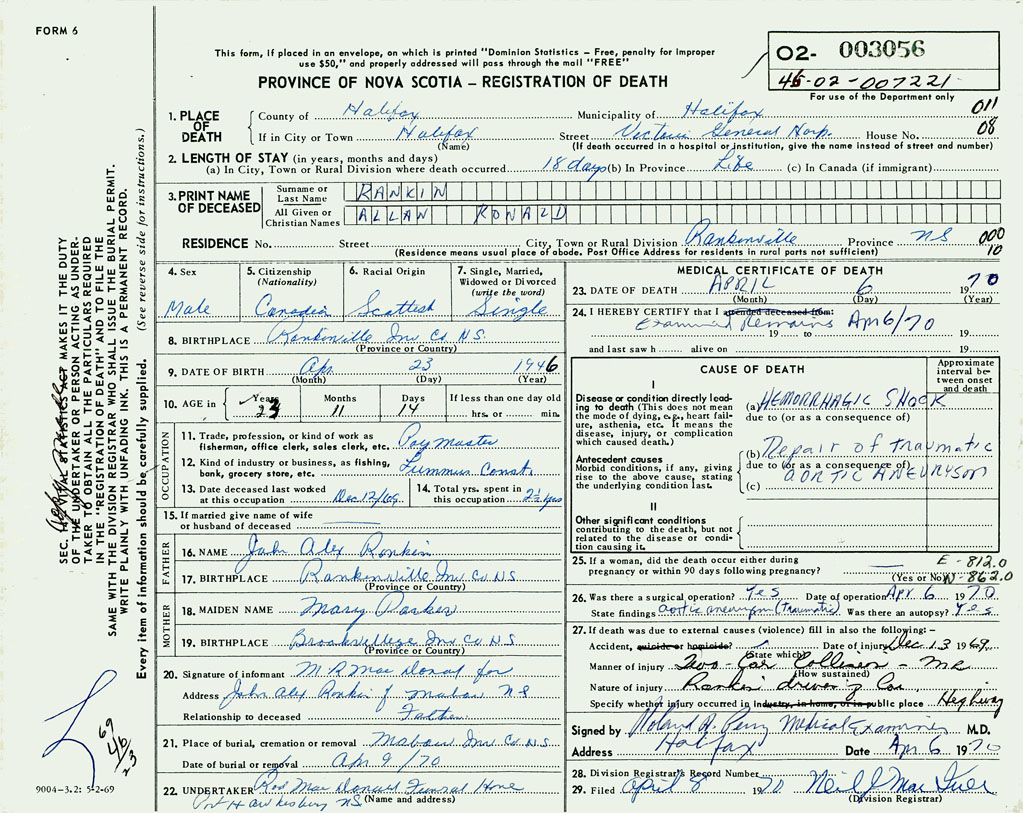 FORM 6
This form, if placed in an envelope, on which is printed "Dominion Statistics – Free, penalty for improper
use $50," and properly addressed will pass through the mail "FREE"
PROVINCE OF NOVA SCOTIA – REGISTRATION OF DEATH
02- 003056
46-02-007221
For use of the Department only
1. PLACE OF DEATH { County of Halifax Municipality of Halifax 011
If in City or Town Halifax Street Victoria General Hosp. House No. 08
(Name) (If death occurred in a hospital or institution, give the name instead of street and number)
2. LENGTH OF STAY (in years, months and days)
(a) In City, Town or Rural Division where death occurred 18 days (b) In Province Life (c) In Canada (if immigrant)
3. PRINT NAME OF DECEASED { Surname or Last Name RANKIN
All Given or Christian Names ALLAN RONALD
RESIDENCE No. Street City, Town or Rural Division Rankinville Province NS 000
(Residence means usual place of abode. Post Office Address for residents in rural parts not sufficient) 10
4. Sex Male
5. Citizenship (Nationality) Canadian
6. Racial Origin Scottish
7. Single, Married, Widowed or Divorced (write the word) Single
8. BIRTHPLACE Rankinville Inv Co. N.S.
(Province or Country)
9. DATE OF BIRTH Apr. 23 1946
(Month) (Day) (Year)
10. AGE in { Years 23 Months 11 Days 14 If less than one day old
hrs. or min.
OCCUPATION
11. Trade, profession or kind of work as fisherman, office clerk, sales clerk, etc. Pay Master
12. Kind of industry or business, as fishing, bank, grocery store, etc. Const.
13. Date deceased last worked at this occupation Dec 12/69
14. Total yrs. spent in this occupation 2½ yrs
15. If married give name of wife or husband of deceased
FATHER
16. NAME John Alex Rankin
17. BIRTHPLACE Rankinville Inv Co. N.S
(Province or Country)
MOTHER
18. MAIDEN NAME Mary
19. BIRTHPLACE Inv Co N.S
(Province or Country)
20. Signature of informant M R MacDonald for
Address John Alex Rankin Mabou NS
Relationship to deceased Father
21. Place of burial, cremation or removal Mabou Inv Co N.S
Date of burial or removal Apr 9/70
22. UNDERTAKER Rod MacDonald Funeral Home
Pt Hawkesbury NS (Name and address)
MEDICAL CERTIFICATE OF DEATH
23. DATE OF DEATH APRIL 6 1970
(Month) (Day) (Year)
24. I HEREBY CERTIFY that I attended deceased from:
Examined Remains Apr 6/70
19 to 19
and last saw h alive on 19
CAUSE OF DEATH
Approximate interval between onset and death
I
Disease or condition directly leading to death (This does not mean the mode of dying, e.g., heart failure, asthenia, etc. It means the disease, injury, or complication which caused death.)
(a) HEMORRHAGIC SHOCK
due to (or as a consequence of)
Antecedent causes
Morbid conditions, if any, giving rise to the above cause, stating the underlying condition last.
(b) Repair of traumatic
due to (or as a consequence of)
(c) AORTIC ANEURYSM
II
Other significant conditions contributing to the death, but not related to the disease or condition causing it.
25. If a woman, did the death occur either during pregnancy or within 90 days following pregnancy?
(Yes or No)
E - 812.0
N - 862.0
26. Was there a surgical operation? Yes Date of operation Apr. 6 1970
State findings aortic aneurysm (traumatic) Was there an autopsy? Yes
27. If death was due to external causes (violence) fill in also the following: –
Accident, suicide or homicide? Date of injury Dec 13 1969
(State which)
Manner of injury Two-Car Collision - Mr
(How sustained)
Nature of injury Rankin driving Car
Specify whether injury occurred in industry, in home, or in public place Highway
Signed by Roland H. Perry Medical Examiner M.D.
Address Halifax Date Apr. 6 1970
28. Division Registrar's Record Number
29. Filed April 8 1970 Neil J Mac
(Division Registrar)
SEC. VITAL STATISTICS ACT MAKES IT THE DUTY
OF THE UNDERTAKER OR PERSON ACTING AS UNDER-
TAKER TO OBTAIN ALL THE PARTICULARS REQUIRED
IN THE "REGISTRATION OF DEATH" AND TO FILE THE
SAME WITH THE DIVISION REGISTRAR WHO SHALL ISSUE THE BURIAL PERMIT.
WRITE PLAINLY WITH UNFADING INK. THIS IS A PERMANENT RECORD.
Every item of information should be carefully supplied. (See reverse side for instructions.)
69
46
23
9004-3.2: 5-2-69